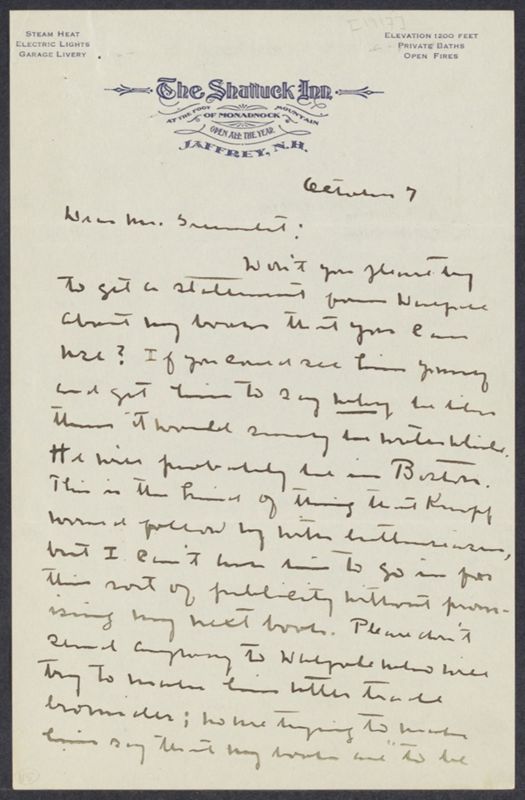 [1917?]
STEAM HEAT
ELECTRIC LIGHTS
GARAGE LIVERY
ELEVATION 1200 FEET
PRIVATE BATHS
OPEN FIRES
The Shattuck Inn
AT THE FOOT OF MONADNOCK MOUNTAIN
OPEN ALL THE YEAR
JAFFREY, N.H.
October 7
Dear Mr. Greenslet:
Won't you please try
to get a statement from Walpole
about my books that you can
use? If you could see him yourself
and get him to say why he likes
them it would surely be worth while.
He will probably be in Boston.
This is the kind of thing that Knopf
would follow up with enthusiasm,
but I can't ask him to go in for
this sort of publicity without prom-
ising my next book. Please don't
send anyway to Walpole who will
try to make him utter trade
bromides; no use trying to make
him say that my books are "to be